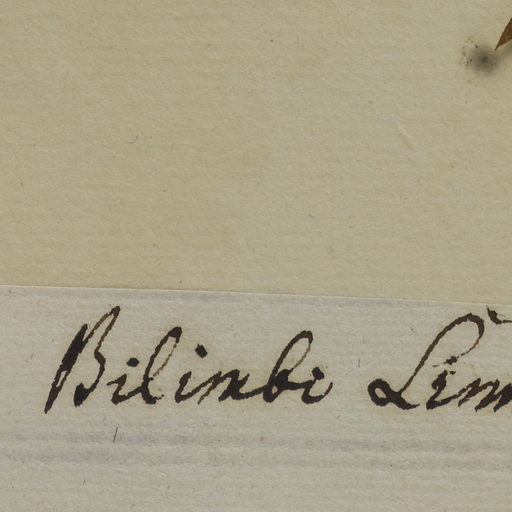 Bilimbi Linn